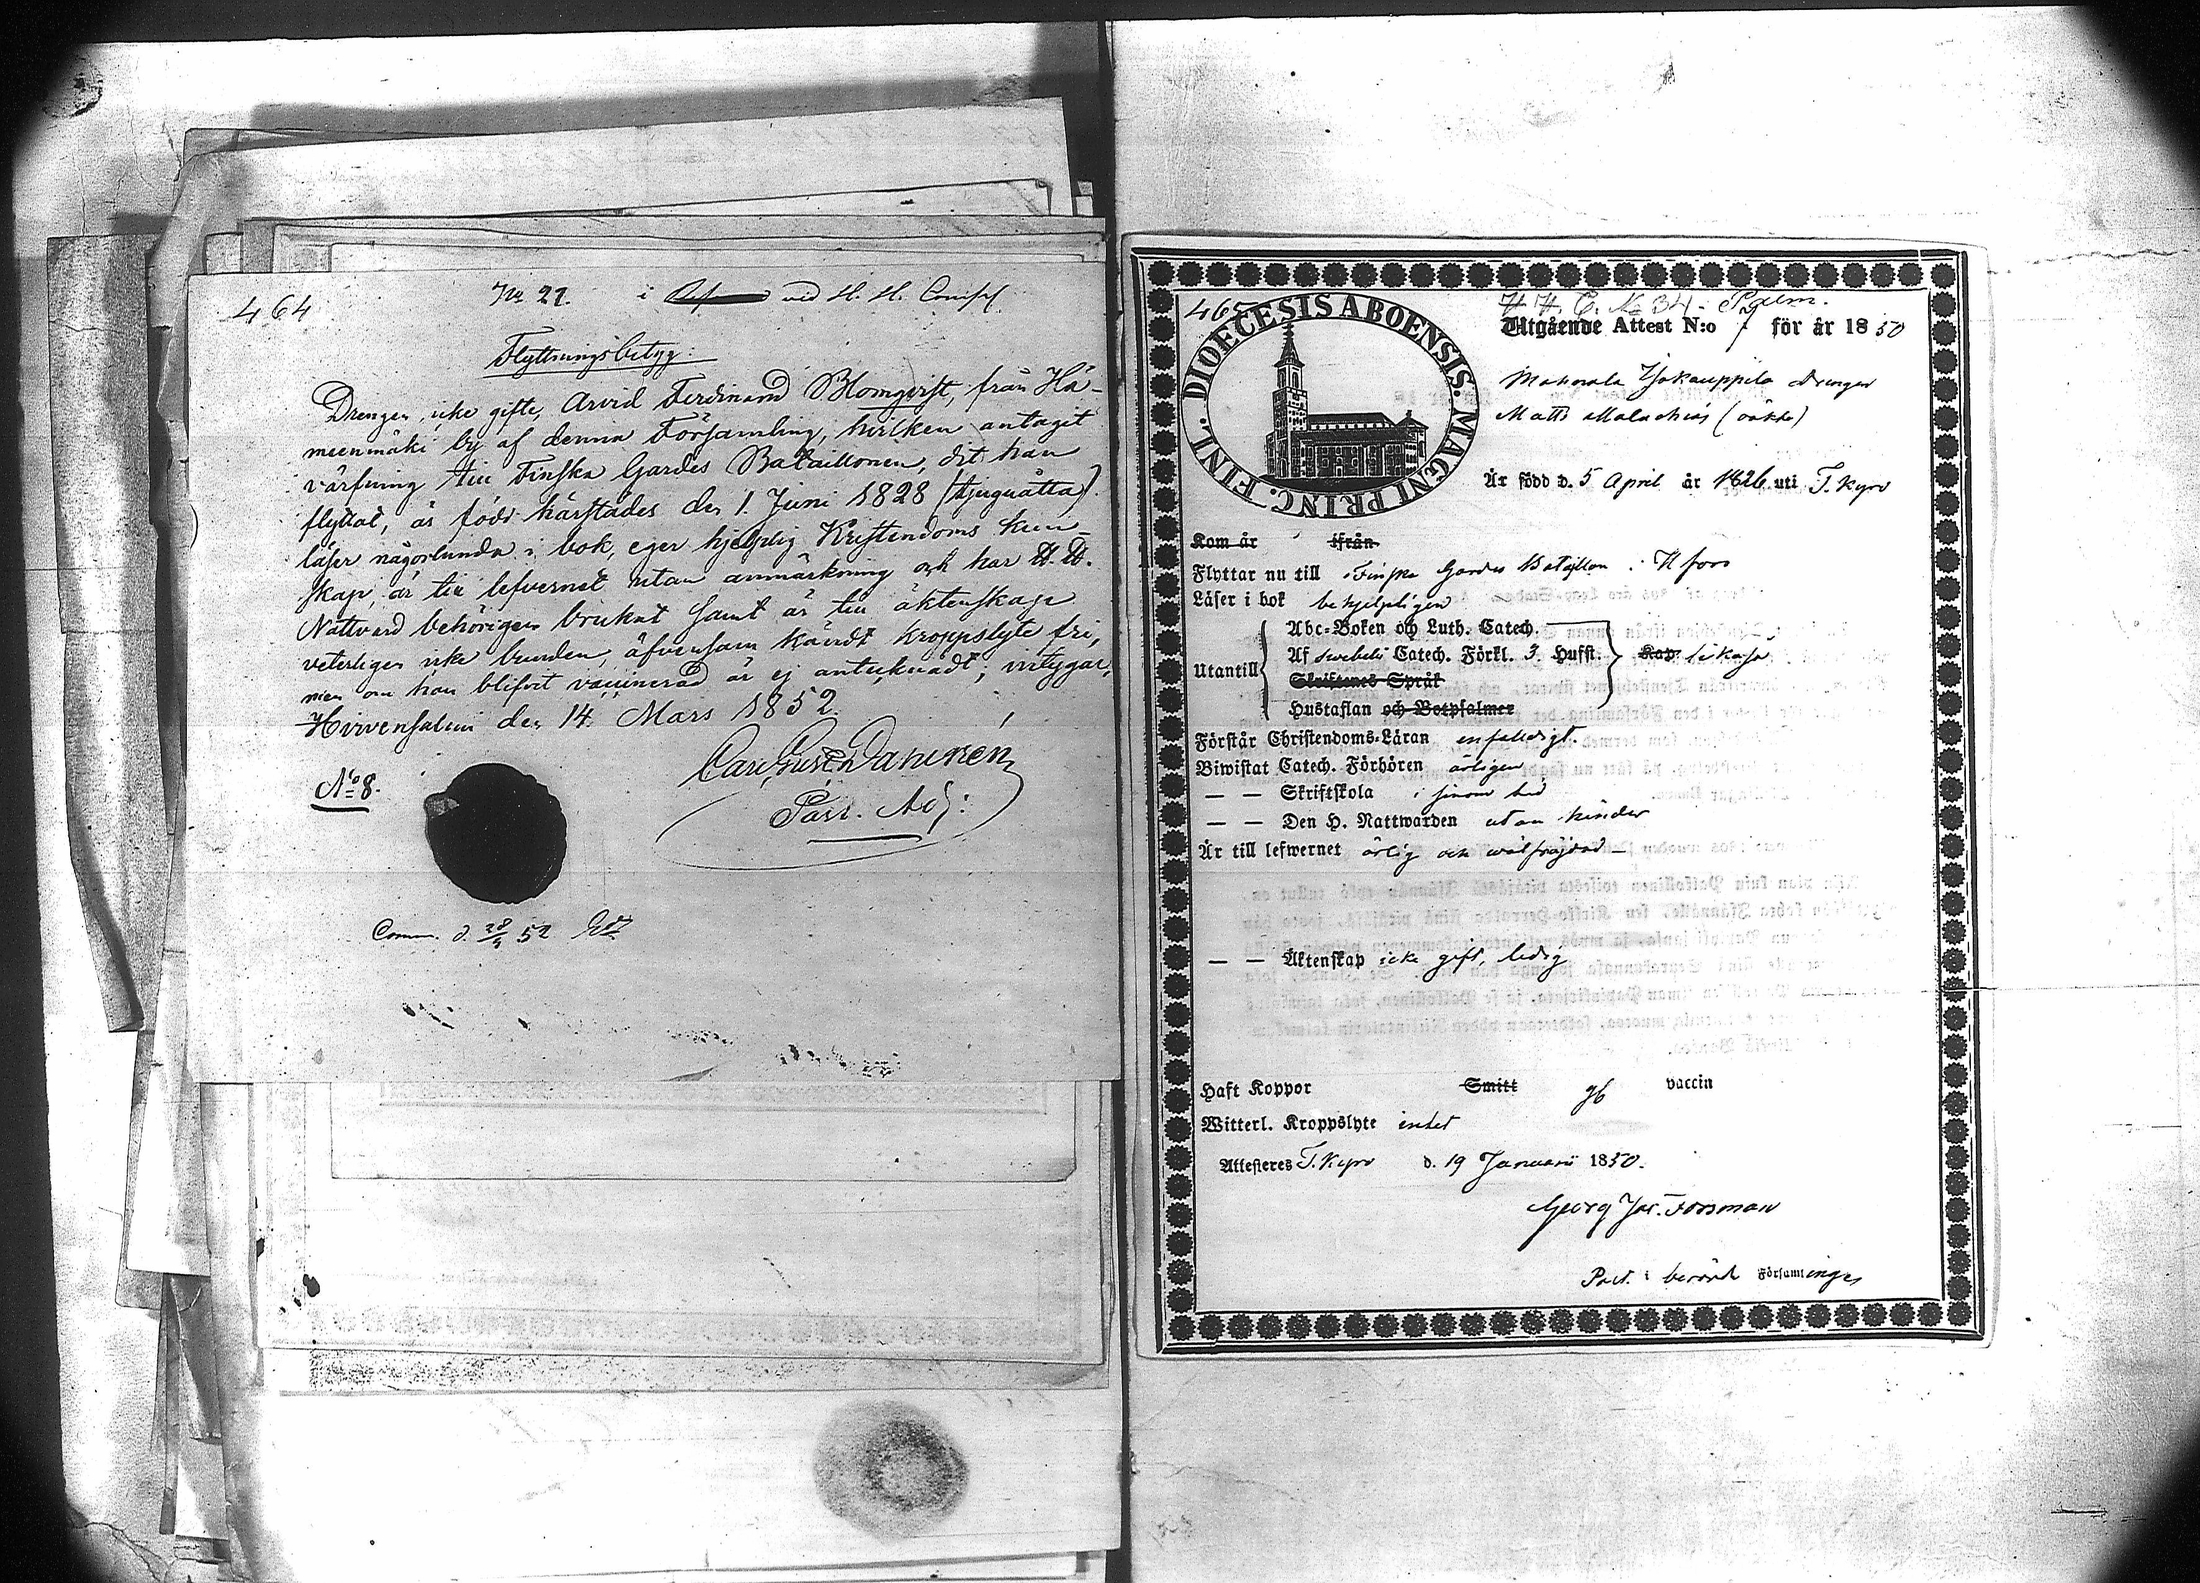 464
No 27. i vid H. H. Comp.
Flyttningsbetyg:
Drengen, icke gifte, Arvid Ferdinand Blomqvist, från Hä-
meenmäki by af denna Församling, hvilken antagit
värfning till Finska Gardes Bataillonen, dit han
flyttat, är född härstädes den 1. Juni 1828 (tjuguåtta).
läser någorlunda i bok, eger hjelplig Kristendoms kun-
skap, är till lefvernet utan anmärkning och har H. H.
Nattvard behörigen brukat samt är till äktenskap
veterligen icke bunden, äfvensom kändt kroppslyte fri,
men om han blifvit vaccinerad är ej antecknadt; intygar,
Hirvensalmi den 14. Mars 1852.
Carl Gust. Danienén
Past. Adj:
No 8.
Comm. d. 28/4 52
465
H. H. C. No 34. Palm.
DIOECESIS ABOENSIS. MAGNI PRINC. FINL.
Utgående Attest N:o 7 för år 1850
Mahnala Yjokauppila Drengen
Matts Malachias
Är född d. 5 April år 1826 uti T. Kyro
Kom år ifrån
Flyttar nu till Finska Gardes Bataillon i H fors
Läser i bok behjelpligen
Abc-Boken och Luth. Catech.
Utantill Af Svebeli Catech. Förkl. 3. Hufst. Kap likaså
Skriftenes Språk
Hustaflan och Botpsalmer
Förstår Christendoms-Läran enfaldigt.
Biwistat Catech. Förhören årligen
— — Skriftskola i sinom tid
— — Den H. Nattwarden utan hinder
Är till lefwernet ärlig och wälfräjdad —
— — Äktenskap icke gift, ledig
Haft Koppor Smitt gb vaccin
Witterl. Kroppslyte intet
Attesteres T. Kyro d. 19 Januarii 1850.
Georg Jac. Forsman
Past. i berörd Församlingen